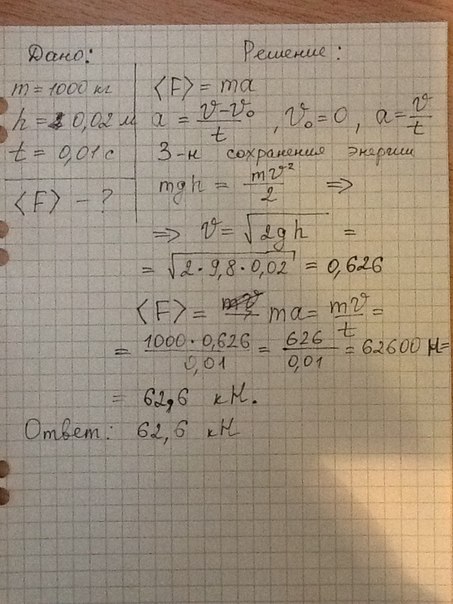 Дано:
Решение:
m = 1000 кг
h = 0,02 м
t = 0,01 с
⟨F⟩ - ?
⟨F⟩ = ma
a = (v-v₀)/t , v₀ = 0, a = v/t
З-н сохранения энергии
mgh = mv²/2 ⇒
⇒ v = √(2gh) =
= √(2·9,8·0,02) = 0,626
⟨F⟩ = ma = mv/t =
= (1000·0,626)/0,01 = 626/0,01 = 62600 Н =
= 62,6 кН.
Ответ: 62,6 кН